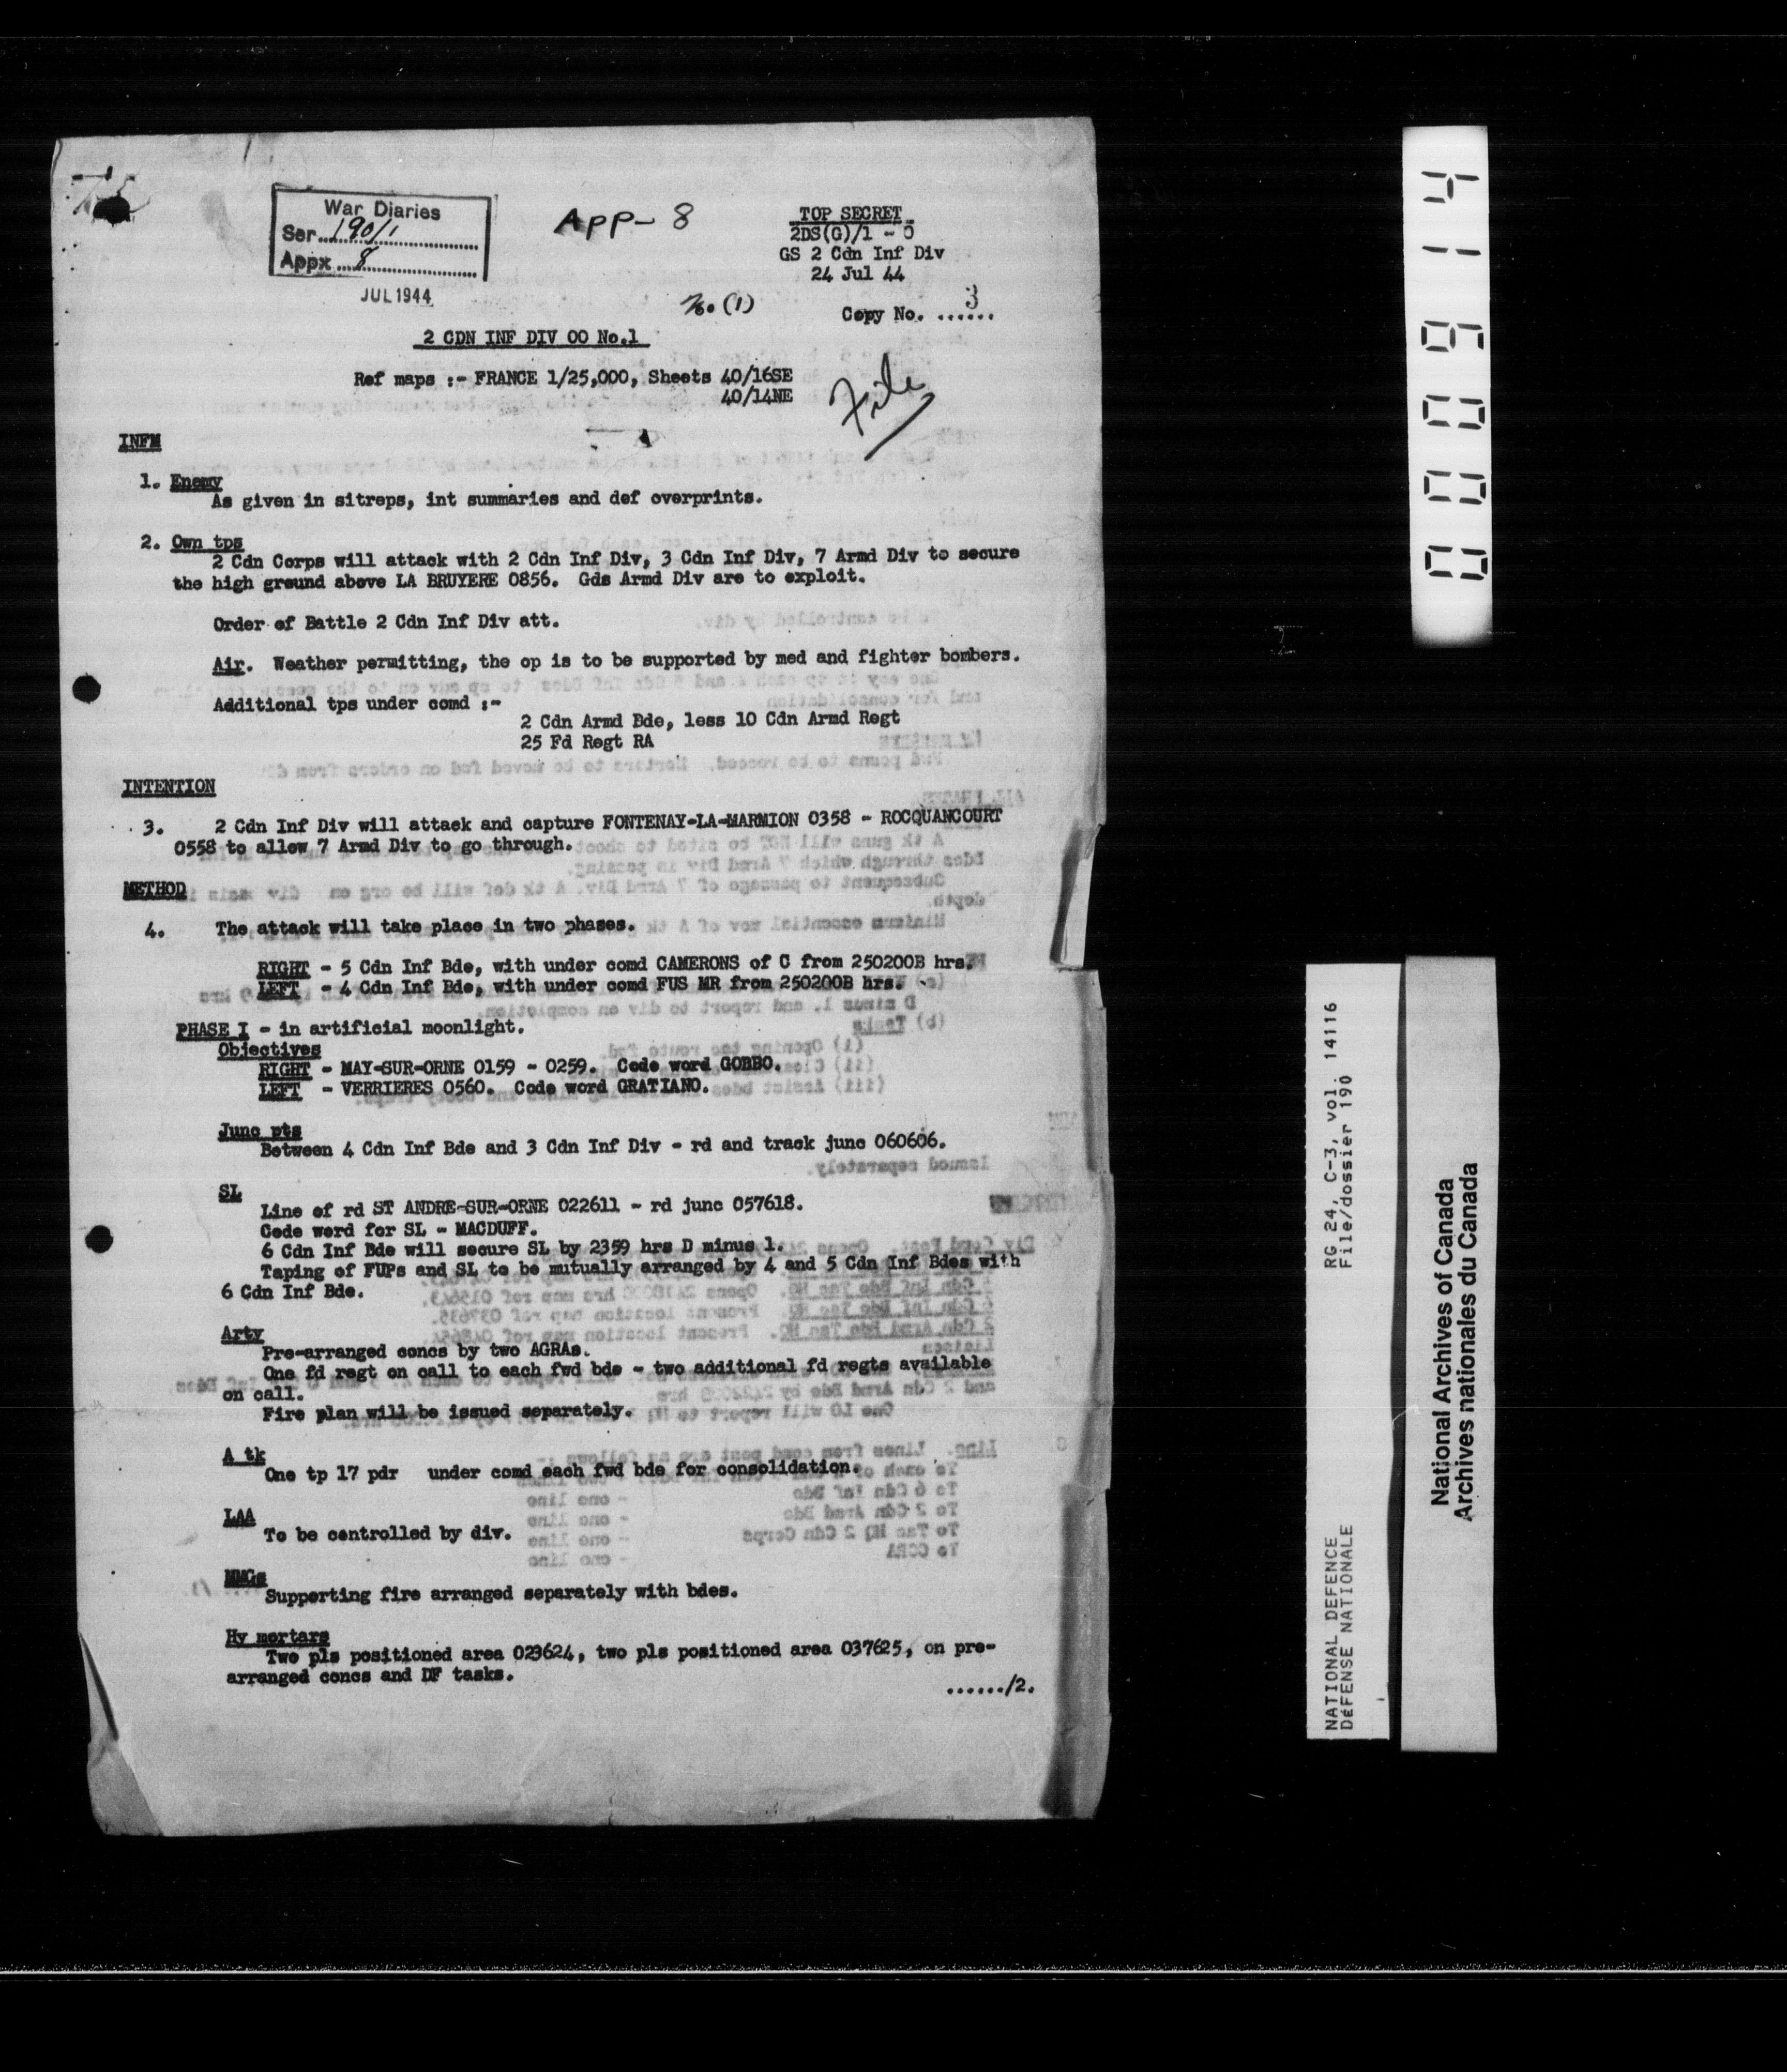 War Diaries
Ser. 190/1
Appx 8
JUL 1944
APP- 8
TOP SECRET
2DS(G)/1 - 0
GS 2 Cdn Inf Div
24 Jul 44
(1)
Copy No. ...... 3
2 CDN INF DIV OO No.1
Ref maps :- FRANCE 1/25,000, Sheets 40/16SE
40/14NE
File
INFM
1. Enemy
As given in sitreps, int summaries and def overprints.
2. Own tps
2 Cdn Corps will attack with 2 Cdn Inf Div, 3 Cdn Inf Div, 7 Armd Div to secure
the high ground above LA BRUYERE 0856. Gds Armd Div are to exploit.
Order of Battle 2 Cdn Inf Div att.
Air. Weather permitting, the op is to be supported by med and fighter bombers.
Additional tps under comd :-
2 Cdn Armd Bde, less 10 Cdn Armd Regt
25 Fd Regt RA
INTENTION
3. 2 Cdn Inf Div will attack and capture FONTENAY-LA-MARMION 0358 - ROCQUANCOURT
0558 to allow 7 Armd Div to go through.
METHOD
4. The attack will take place in two phases.
RIGHT - 5 Cdn Inf Bde, with under comd CAMERONS of C from 250200B hrs.
LEFT - 4 Cdn Inf Bde, with under comd FUS MR from 250200B hrs.
PHASE I - in artificial moonlight.
Objectives
RIGHT - MAY-SUR-ORNE 0159 - 0259. Code word GOBBO.
LEFT - VERRIERES 0560. Code word GRATIANO.
Junc pts
Between 4 Cdn Inf Bde and 3 Cdn Inf Div - rd and track junc 060606.
SL
Line of rd ST ANDRE-SUR-ORNE 022611 - rd junc 057618.
Code word for SL - MACDUFF.
6 Cdn Inf Bde will secure SL by 2359 hrs D minus 1.
Taping of FUPs and SL to be mutually arranged by 4 and 5 Cdn Inf Bdes with
6 Cdn Inf Bde.
Arty
Pre-arranged concs by two AGRAs.
One fd regt on call to each fwd bde - two additional fd regts available
on call.
Fire plan will be issued separately.
A tk
One tp 17 pdr under comd each fwd bde for consolidation.
LAA
To be controlled by div.
MMGs
Supporting fire arranged separately with bdes.
Hy mortars
Two pls positioned area 023624, two pls positioned area 037625, on pre-
arranged concs and DF tasks.
....../2.
000614
RG 24, C-3, vol. 14116
File/dossier 190
NATIONAL DEFENCE
DéFENSE NATIONALE
National Archives of Canada
Archives nationales du Canada